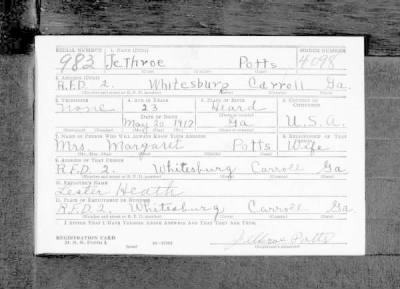 SERIAL NUMBER 1. NAME (Print) ORDER NUMBER
983 Jethroe Potts 4098
2. ADDRESS (Print)
R.F.D 2. Whitesburg Carroll Ga.
3. TELEPHONE 4. AGE IN YEARS 5. PLACE OF BIRTH 6. COUNTRY OF CITIZENSHIP
None 23 Heard
DATE OF BIRTH
Mar. 20 1917 Ga. U.S.A.
7. NAME OF PERSON WHO WILL ALWAYS KNOW YOUR ADDRESS 8. RELATIONSHIP OF THAT PERSON
Mrs. Margaret Potts Wife
9. ADDRESS OF THAT PERSON
R.F.D. 2. Whitesburg Carroll Ga.
10. EMPLOYER'S NAME
Lester Heath
11. PLACE OF EMPLOYMENT OR BUSINESS
R.F.D 2. Whitesburg Carroll Ga.
I AFFIRM THAT I HAVE VERIFIED ABOVE ANSWERS AND THAT THEY ARE TRUE.
REGISTRATION CARD
D. S. S. Form 1
Jethroe Potts